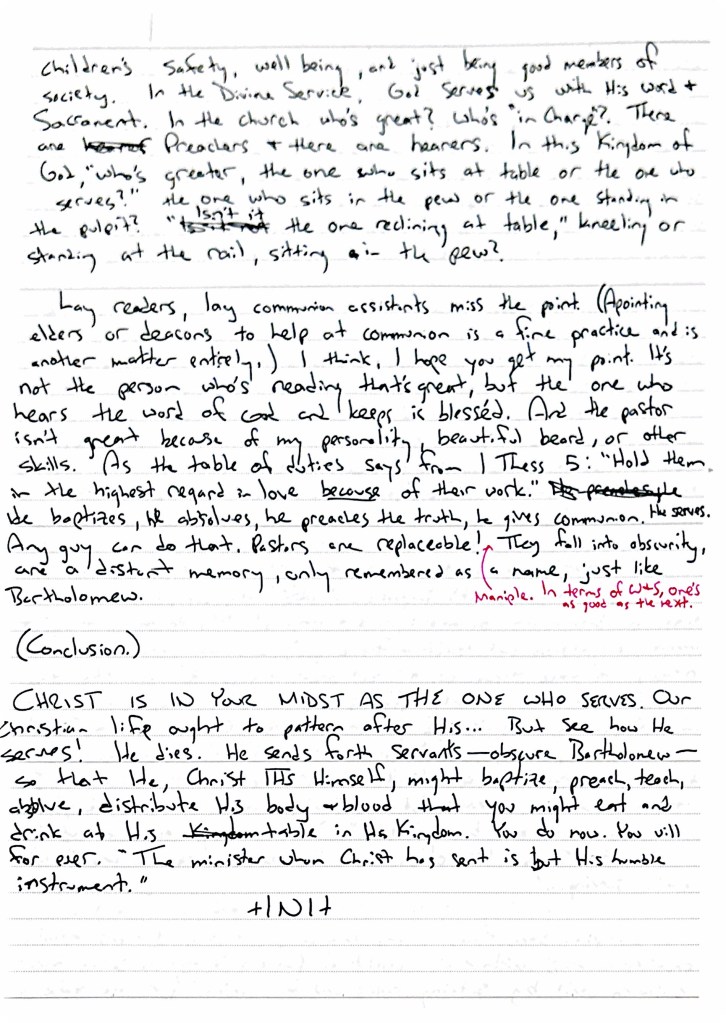 children's safety, well being, and just being good members of
society. In the Divine Service, God serves us with His word +
Sacrament. In the church who's great? Who's "in Charge"? There
are Preachers + there are hearers. In this Kingdom of
God, "who's greater, the one who sits at table or the one who
serves?" the one who sits in the pew or the one standing in
the pulpit? "Isn't it the one reclining at table," kneeling or
standing at the rail, sitting in the pew?
Lay readers, lay communion assistants miss the point. (Apointing
elders or deacons to help at communion is a fine practice and is
another matter entirely.) I think, I hope you get my point. It's
not the person who's reading that's great, but the one who
hears the word of God and keeps is blesséd. And the pastor
isn't great because of my personality, beautiful beard, or other
skills. As the table of duties says from 1 Thess 5: "Hold them
in the highest regard in love because of their work."
He baptizes, he absolves, he preaches the truth, he gives communion. He serves.
Any guy can do that. Pastors are replaceable! They fall into obscurity,
are a distant memory, only remembered as a name, just like
Bartholomew.
Maniple. In terms of W+S, one's
as good as the next.
(Conclusion.)
CHRIST IS IN YOUR MIDST AS THE ONE WHO SERVES. Our
Christian life ought to pattern after His... But see how He
serves! He dies. He sends forth servants—obscure Bartholomew—
so that He, Christ IHS Himself, might baptize, preach, teach,
absolve, distribute His body + blood that you might eat and
drink at His table in His Kingdom. You do now. You will
for ever. "The minister whom Christ has sent is but His humble
instrument."
+INI+